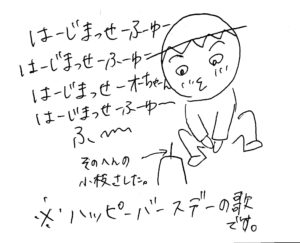 はーじまっせーふーゆー
はーじまっせーふーゆー
はーじまっせーオーちゃーん
はーじまっせーふーゆ〜
ふ〜〜
そのへんの
小枝さした。
※ハッピーバースデーの歌
です。